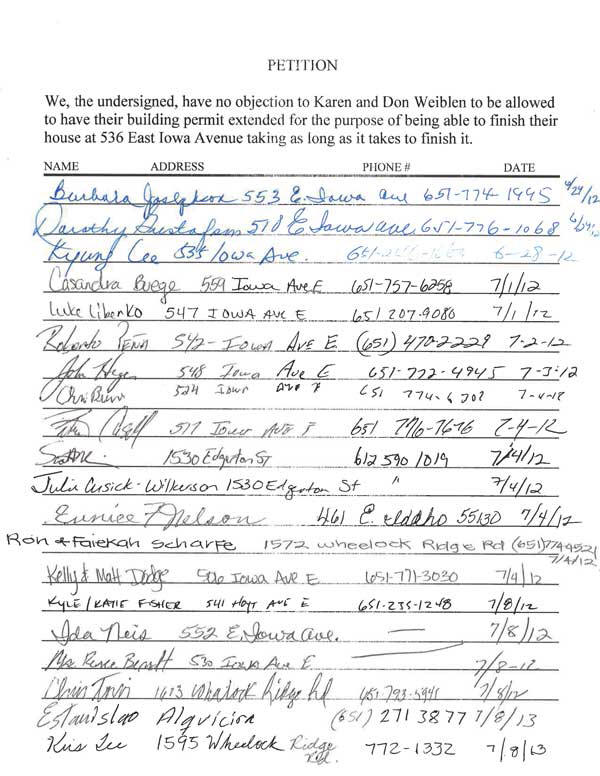 PETITION
We, the undersigned, have no objection to Karen and Don Weiblen to be allowed
to have their building permit extended for the purpose of being able to finish their
house at 536 East Iowa Avenue taking as long as it takes to finish it.
NAME ADDRESS PHONE # DATE
Barbara Josephson 553 E. Iowa ave 651-774-1995 6/29/12
Dorothy Gustafson 518 E Iowa ave. 651-776-1068
Kyung Lee 535 Iowa Ave. 6-28-12
Casandra Buege 559 Iowa Ave E 651-757-6258 7/1/12
Luke Libenko 547 IOWA AVE E 651 207-9080 7/1/12
Roberto Peña 542- IOWA AVE E (651) 470-2229 7-2-12
John 548 Iowa Ave E 651-772-4945 7-3-12
Chris 524 Iowa Ave E 651 774-6702 7-4-12
517 Iowa Ave E 651 776-7676 7-4-12
1530 Edgerton ST 612 590 1019 7/4/12
Julia Cusick-Wilkerson 1530 Edgerton St " 7/4/12
Eunice F Nelson 461 E. Idaho 55130 7/4/12
Ron & Faiekah Scharfe 1572 Wheelock Ridge Rd (651)774-4521
7/4/12
Kelly & Matt Dodge 506 Iowa Ave E 651-771-3030 7/4/12
KYLE/KATIE FISHER 541 HOYT AVE E 651-235-1248 7/8/12
Ida Neis 552 E. Iowa Ave. — 7/8/12
Mrs Renee 530 Iowa Ave E 7/8-12
Chris 1613 Whelock Ridge Rd 651-793-5941 7/8/12
Estanislao Alguicira (651) 271 3877 7/8/13
Kris Lee 1595 Wheelock Ridge 772-1332 7/8/13
Rd.